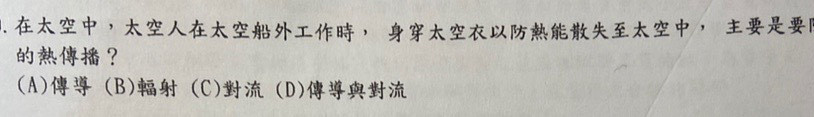 . 在太空中，太空人在太空船外工作時， 身穿太空衣以防熱能散失至太空中， 主要是要
的熱傳播？
(A)傳導 (B)輻射 (C)對流 (D)傳導與對流